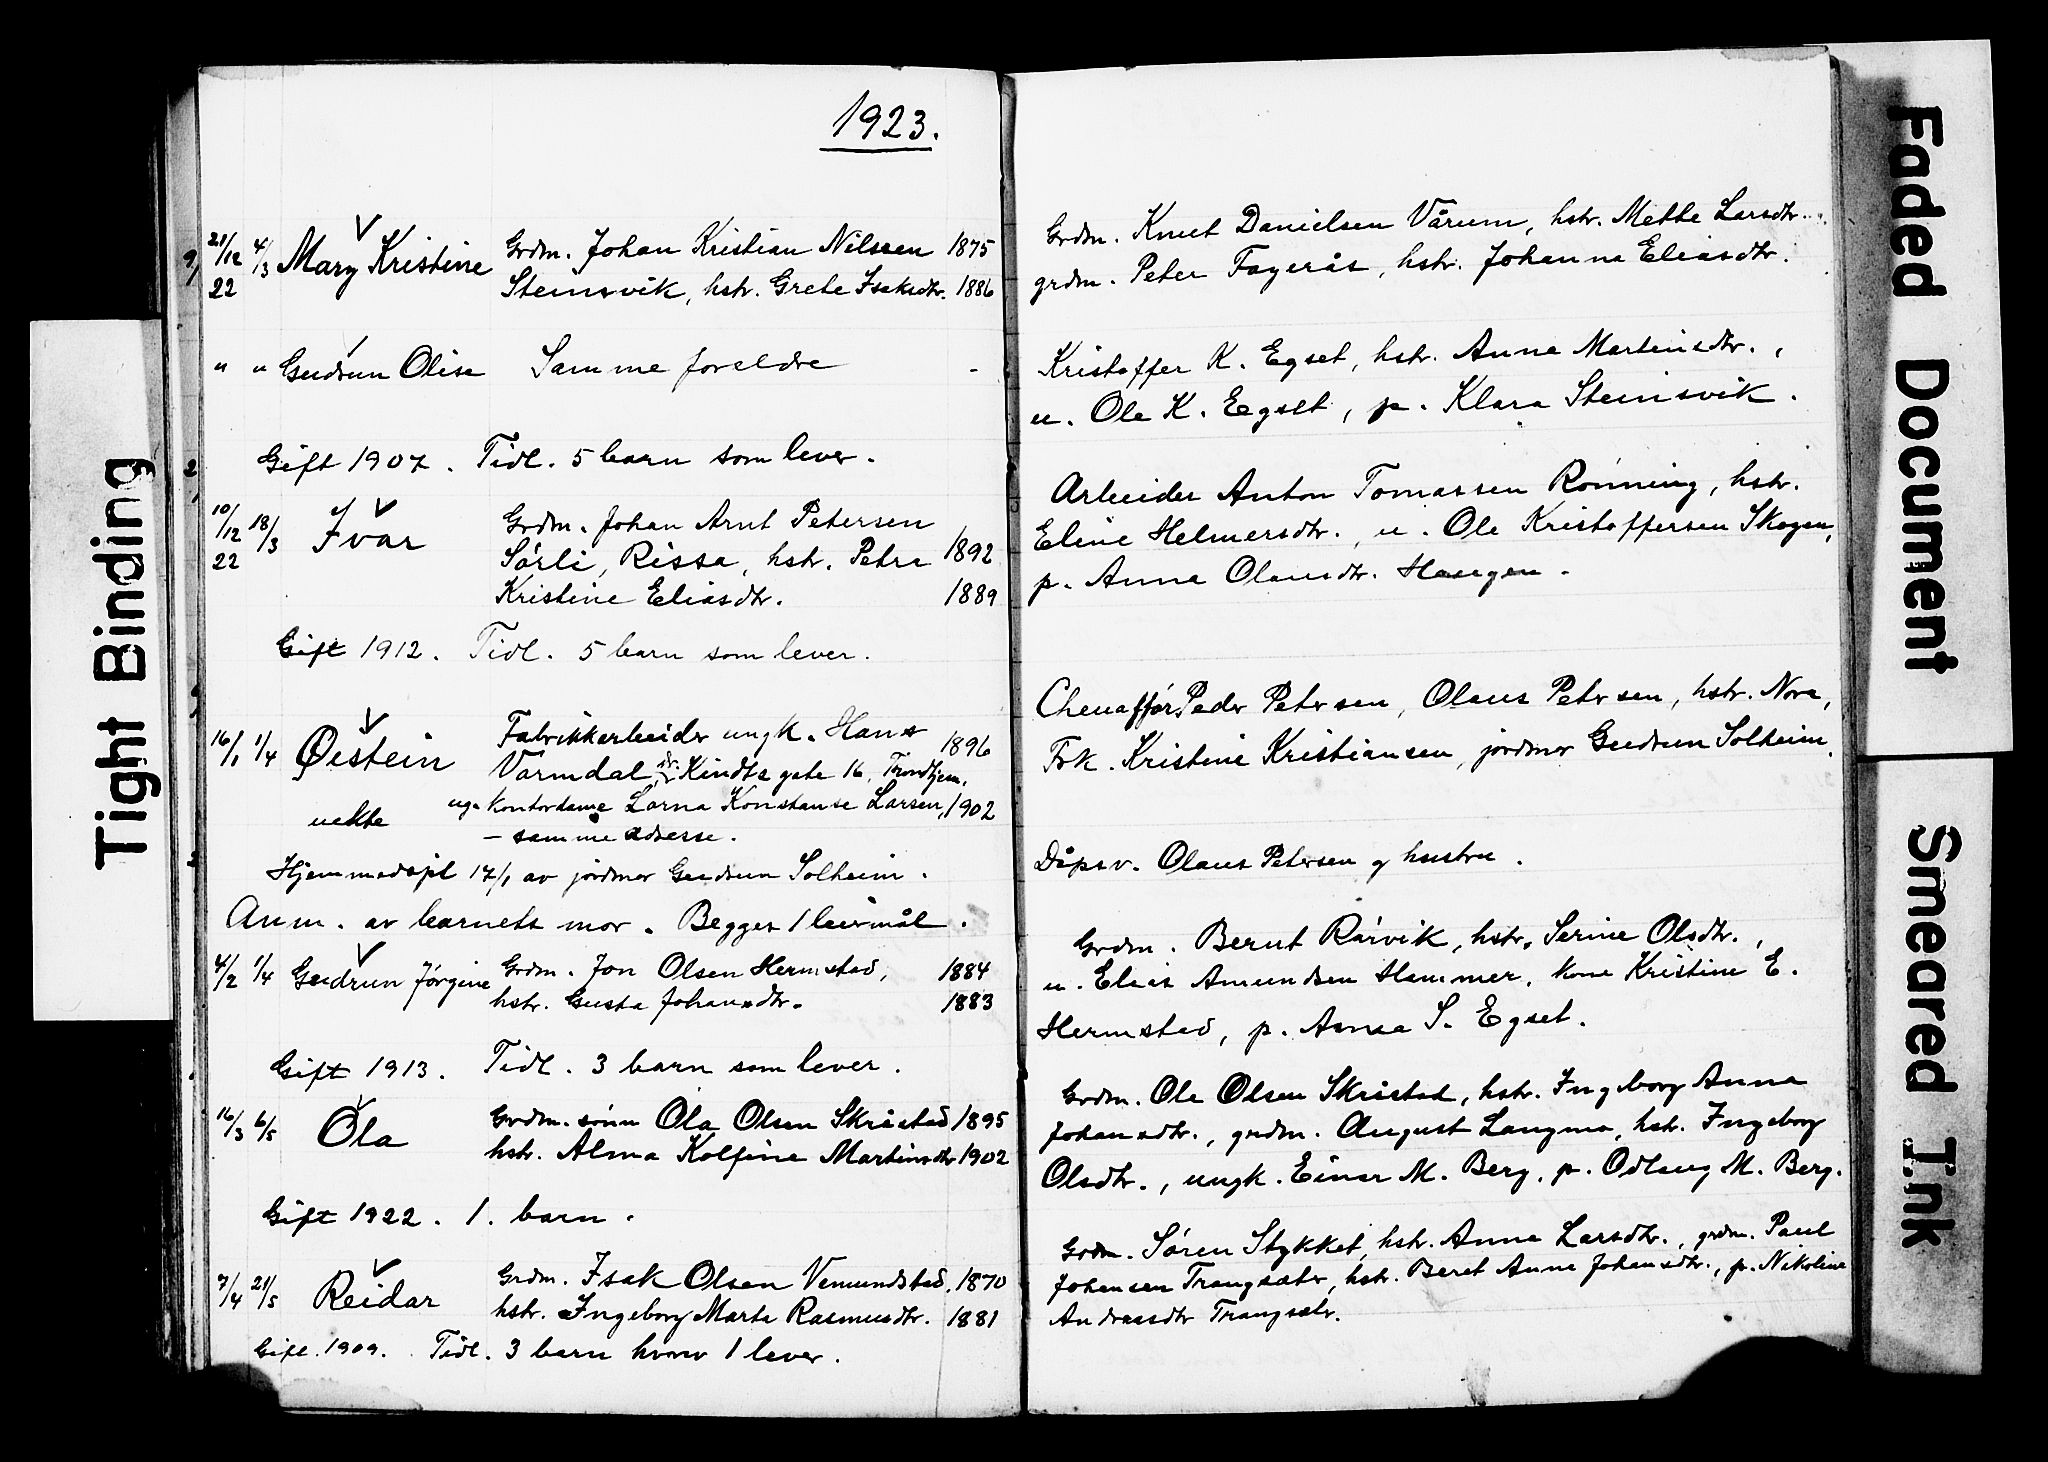 1923.
21/12 22 4/3 Mary Kristine Grdm. Johan Kristian Nilssen 1875
Steinsvik, hstr. Grete Isaksdtr. 1886
" " Gudrun Olise Samme foreldre -
Gift 1907. Tidl. 5 barn som lever.
10/12 22 18/3 Ivar Grdm. Johan Arnt Petersen
Sørli, Rissa, hstr. Petra 1892
Kristine Eliasdtr. 1889
Gift 1912. Tidl. 5 barn som lever.
16/1 1/4 Øistein Fabrikkarbeider ungk. Hans 1896
Varmdal, Kindts gate 16, Trondhjem.
uekte Kontordame Lorna Konstanse Larsen, 1902
– samme adresse.
Hjemmedøpt 17/1 av jordmor Gudrun Solheim.
Anm. av barnets mor. Begges 1 leirmål.
4/2 1/4 Gudrun Jørgine Grdm. Jon Olsen Hermstad, 1884
hstr. Gusta Johansdtr. 1883
Gift 1913. Tidl. 3 barn som lever.
16/3 6/5 Ola Grdm. sønn Ola Olsen Skristad 1895
hstr. Alma Kolfine Martinsdtr 1902
Gift 1922. 1. barn.
7/4 21/5 Reidar Grdm. Isak Olsen Vemundstad, 1870
hstr. Ingeborg Marta Rasmusdtr. 1881
Gift 1909. Tidl. 3 barn hvorav 1 lever.
Grdm. Knut Danielsen Vårum, hstr. Mette Larsdtr.
grdm. Peter Fagerås, hstr. Johanna Eliasdtr.
Kristoffer K. Egset, hstr. Anna Martinsdtr.,
u. Ole K. Egset, p. Klara Steinsvik.
Arbeider Anton Tomassen Rønning, hstr.
Eline Helmersdtr., u. Ole Kristoffersen Skogen,
p. Anna Olausdtr. Haugen.
Chauffør Peder Petersen, Olaus Petersen, hstr. Nora,
Frk. Kristine Kristiansen, jordmor Gudrun Solheim.
Dåpsv. Olaus Petersen og hustru.
Grdm. Bernt Rørvik, hstr. Serine Olsdtr.,
u. Elias Amundsen Hammer, kone Kristine E.
Hermstad, p. Anna S. Egset.
Grdm. Ole Olsen Skristad, hstr. Ingeborg Anna
Johansdtr., grdm. August Langmo, hstr. Ingeborg
Olsdtr., ungk. Einar M. Berg, p. Odlaug M. Berg.
Grdm. Søren Stykket, hstr. Anna Larsdtr., grdm. Paul
Johansen Trangsæter, hstr. Beret Anna Johansdtr., p. Nikoline
Andreasdtr Trangsætr.
Tight Binding
Faded Document
Smeared Ink